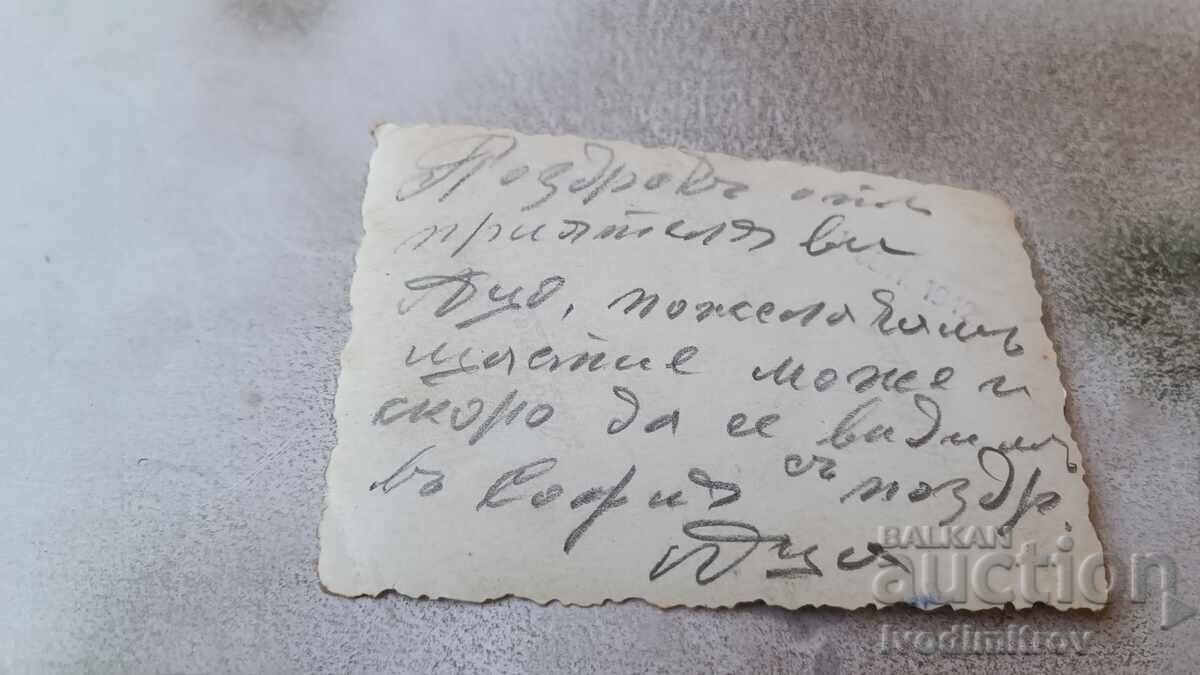 Поздровъ отъ
приятеля ви
Ацо, пожелавамъ
щастие може и
скоро да се видимъ
въ София съ поздр.
Аца
BALKAN
auction
Ivodimitrov